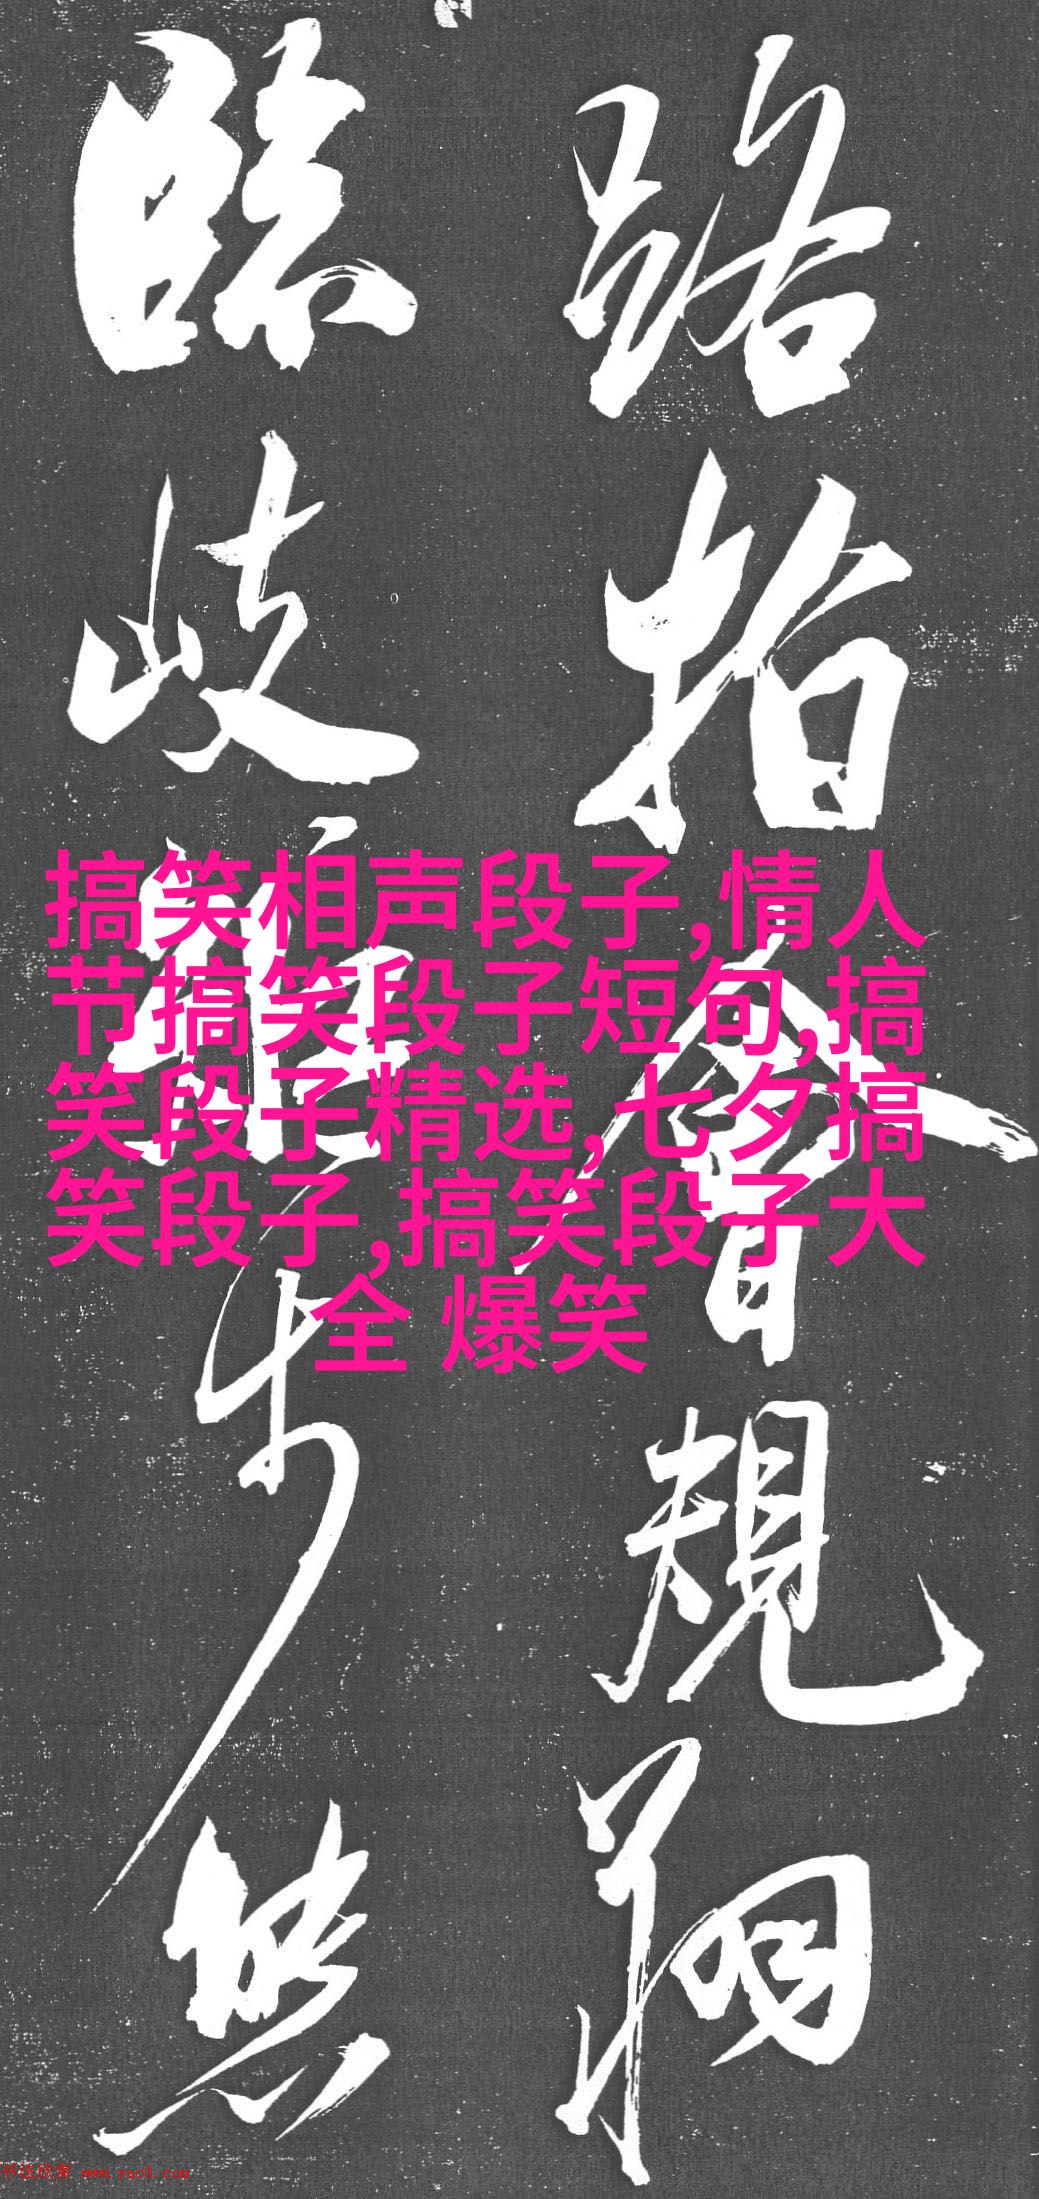 路指會規翔
臨歧步
搞笑相声段子,情人
节搞笑段子短句,搞
笑段子精选, 七夕搞
笑段子,搞笑段子大
全 爆笑
书法欣赏 www.yac8.com